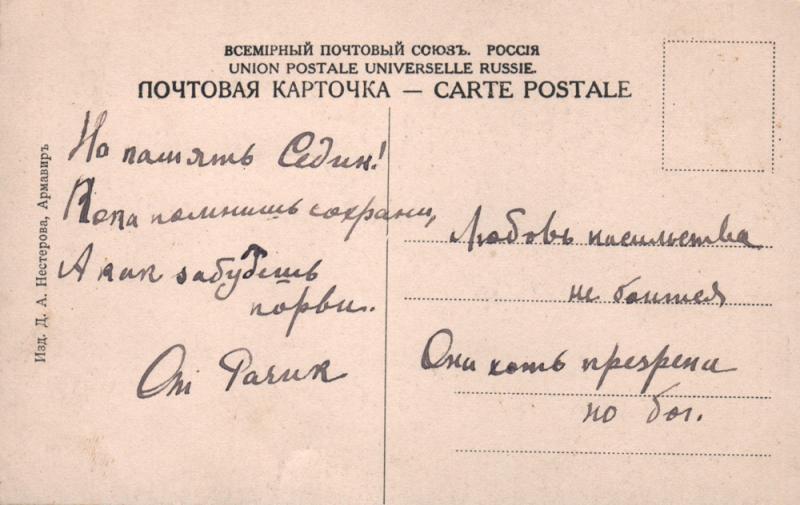 ВСЕМІРНЫЙ ПОЧТОВЫЙ СОЮЗЪ. РОССІЯ
UNION POSTALE UNIVERSELLE RUSSIE.
ПОЧТОВАЯ КАРТОЧКА — CARTE POSTALE
Изд. Д. А. Нестерова, Армавиръ
На память Седик!
Пока помнишь сохрани,
А как забудешь
порви.
От Рачик
Любовь насильства
не боится
Она хоть презрена
но бог.